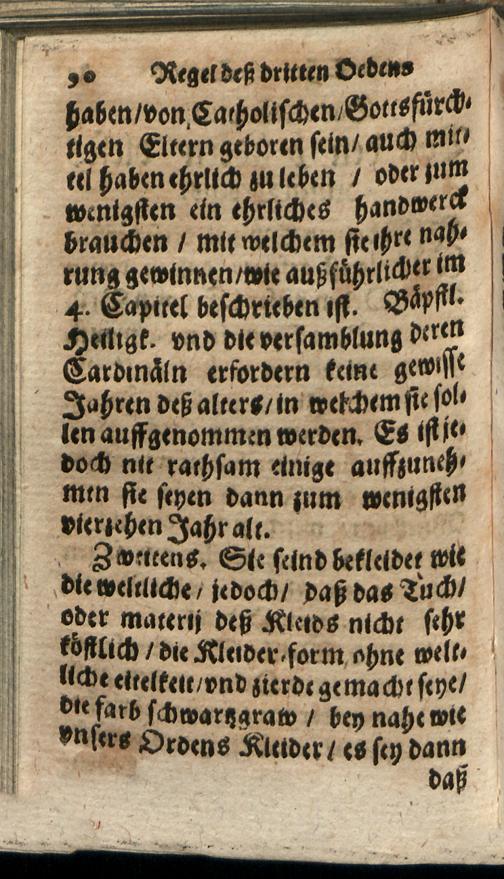 90 Regel deß dritten Oedens
haben/von Catholischen/Gottsfürch-
tigen Eltern geboren sein/ auch mit-
tel haben ehrlich zu leben / oder zum
wenigsten ein ehrliches handwerck
brauchen / mit welchem sie ihre nah-
rung gewinnen/wie außführlicher im
4. Capitel beschrieben ist. Bäpstl.
Heiligk. vnd die versamblung deren
Cardinäln erfordern keine gewisse
Jahren deß alters/in welchem sie sol-
len auffgenommen werden. Es ist je-
doch nit rathsam einige auffzuneh-
men sie seyen dann zum wenigsten
vierzehen Jahr alt.
Zweitens. Sie seind bekleidet wie
die weltliche/ jedoch/ daß das Tuch/
oder materij deß Kleids nicht sehr
köstlich / die Kleider-form ohne welt-
liche eitelkeit/vnd zierde gemacht seye/
die farb schwartzgraw / bey nahe wie
vnsers Ordens Kleider/ es sey dann
daß